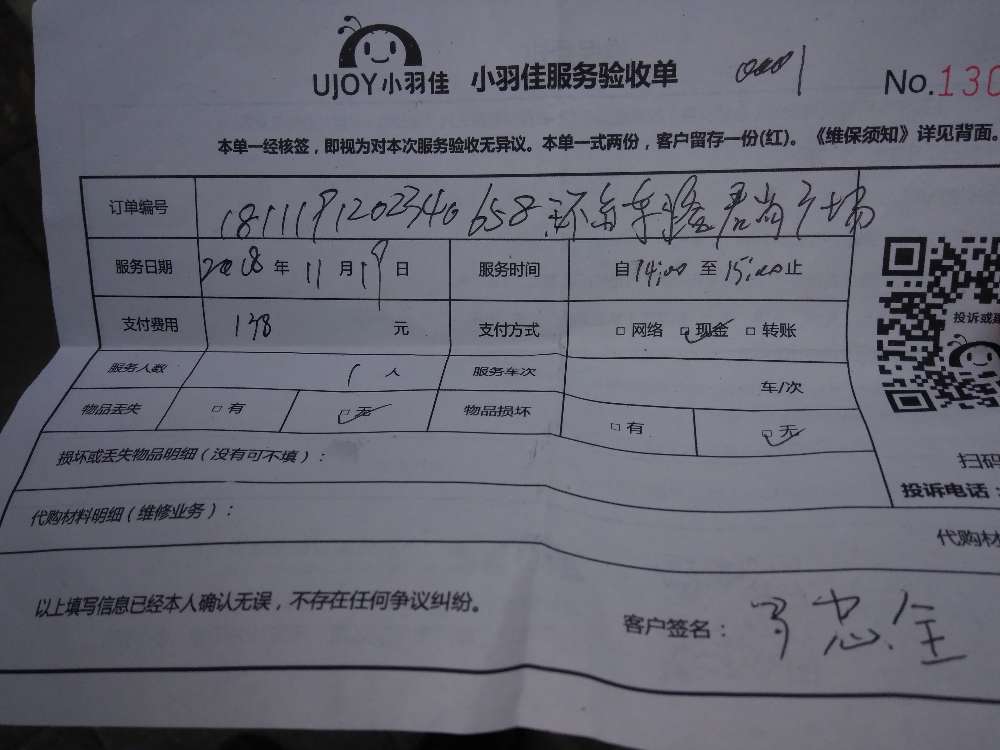 UJOY小羽佳 小羽佳服务验收单 0001 No.130
本单一经核签，即视为对本次服务验收无异议。本单一式两份，客户留存一份(红)。《维保须知》详见背面。
订单编号 1811191202340658 环
服务日期 2018 年 11 月 19 日 服务时间 自 14:00 至 15:00 止
投诉或
支付费用 138 元 支付方式 □ 网络 ☑ 现金 □ 转账
服务人数 1 人 服务车次 车/次
物品丢失 □ 有 ☑ 无 物品损坏 □ 有 ☑ 无
损坏或丢失物品明细（没有可不填）：
扫码
投诉电话：
代购材料明细（维修业务）：
代购材
以上填写信息已经本人确认无误，不存在任何争议纠纷。
客户签名：